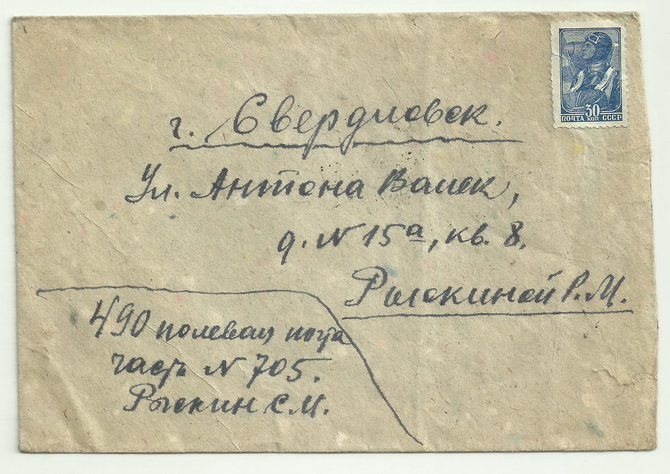 30
ПОЧТА КОП СССР
г. Свердловск.
Ул. Антона Валек,
д. N 15а, кв. 8.
Рыскиной Р. М.
490 полевая почта
часть N 705.
Рыскин С. М.